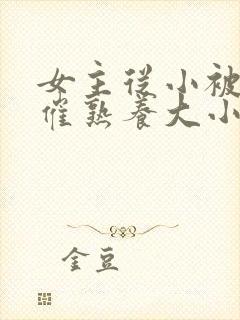 女主從小被
催熟養大小
金豆